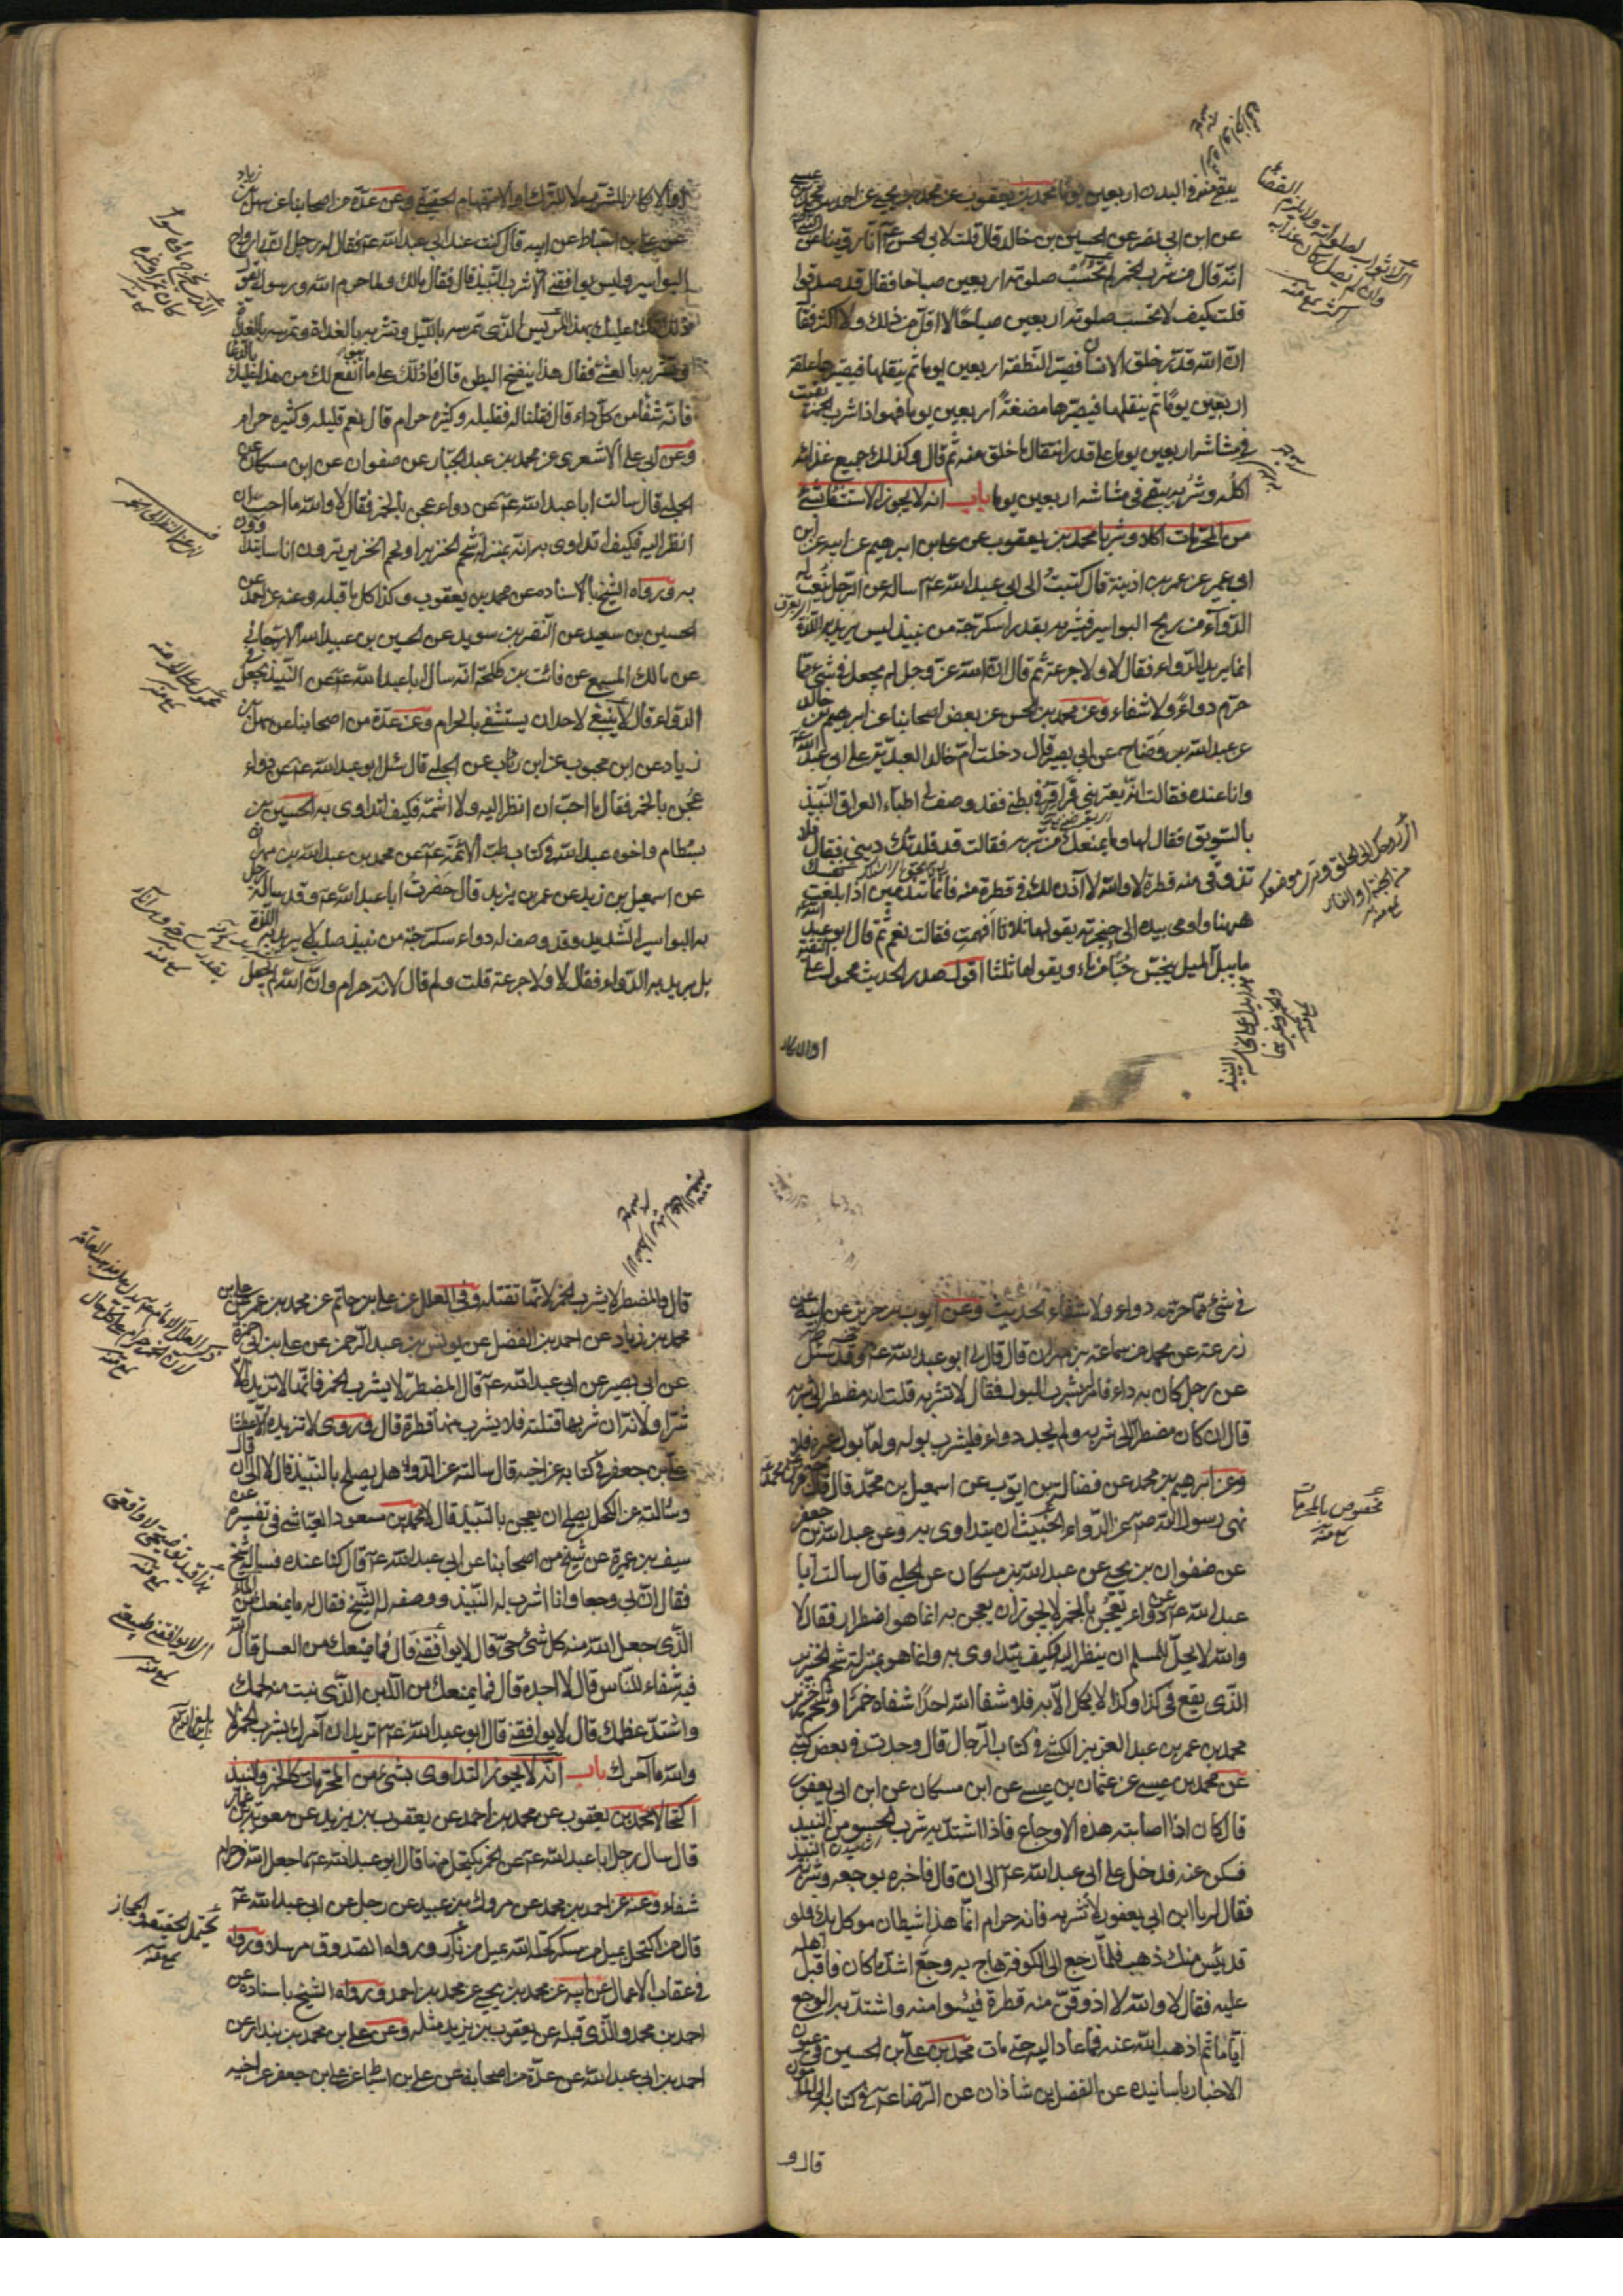 يبقى منه في البدن اربعين يوما محمد بن يعقوب عن محمد بن يحيى عن احمد بن محمد بن عيسى
عن ابن ابي نصر عن الحسين بن خالد قال قلت لابي الحسن عم انا روينا عن
انه قال من شرب الخمر لم تحتسب صلوته اربعين صباحا فقال قد صدقوا
قلت كيف لا تحتسب صلوته اربعين صباحا لا اقل من ذلك ولا اكثر فقال
ان الله قدر خلق الانسان فصير النطفة اربعين يوما ثم ينقلها فيصيرها علقة
اربعين يوما ثم ينقلها فيصيرها مضغة اربعين يوما فهو اذا شرب الخمر بقيت
في مشاشه اربعين يوما على قدر انتقال ما خلق منه ثم قال وكذلك جميع غذائه
اكله وشربه يبقى في مشاشه اربعين يوما باب انه لا يجوز الاستشفاء بشئ
من المحرمات اكلا وشربا محمد بن يعقوب عن علي بن ابرهيم عن ابيه عن ابن
ابي عمير عن عمر بن اذينة قال كتبت الى ابي عبد الله عم اساله عن الرجل ينعت له
الدواء من ريح البواسير فيشربه بقدر اسكرجة من نبيذ ليس يريد به اللذة
انما يريد به الدواء فقال لا ولا جرعة ثم قال ان الله عز وجل لم يجعل في شئ مما
حرم دواء ولا شفاء وعن محمد بن الحسن عن بعض اصحابنا عن ابرهيم بن خالد
عن عبد الله بن وضاح عن ابي بصير قال دخلت ام خالد العبدية على ابي عبد الله عم
وانا عنده فقالت انه يعتريني قراقر في بطني فقد وصف لي اطباء العراق النبيذ
بالسويق فقال لها وما يمنعك من شربه فقالت قد قلدتك ديني فقال فلا
تذوقي منه قطرة لا والله لا آذن لك في قطرة منه فانما تندمين اذا بلغت نفسك
ههنا واومى بيده الى حنجرته يقولها ثلاثا افهمت فقالت نعم ثم قال ابو عبد الله عم
ما يبل الميل ينجس حبا من ماء ويقولها ثلثا اقول صدر الحديث محمول على التقية
او الانكار
او الانكار للشرب لا للترك او الاستفهام الحقيقي وعن عدة من اصحابنا عن سهل بن زياد
عن علي بن اسباط عن ابيه قال كنت عند ابي عبد الله عم فقال له رجل ان بي ارواح
البواسير وليس يوافقني الا شرب النبيذ قال فقال مالك ولما حرم الله ورسوله يقول
ذلك ثلثا عليك بهذا المريس الذي تمرسه بالليل وتشربه بالغداة وتمرسه بالغداة
وتشربه بالعشي فقال هذا ينفخ البطن قال فادلك على ما انفع لك من هذا عليك بالدعاء
فانه شفا من كل داء قال فقلنا له فقليله وكثيره حرام قال نعم قليله وكثيره حرام
وعن ابي علي الاشعري عن محمد بن عبد الجبار عن صفوان عن ابن مسكان عن
الحلبي قال سالت ابا عبد الله عم عن دواء عجن بالخمر فقال لا والله ما احب ان
انظر اليه فكيف اتداوى به انه بمنزلة شحم الخنزير او لحم الخنزير ترون اناسا يتداوون
به ورواه الشيخ بالاسناده عن محمد بن يعقوب وكذا كل ما قبله وعنه عن احمد عن
الحسين بن سعيد عن النضر بن سويد عن الحسين بن عبد الله الارجاني
عن مالك المسمعي عن قائد بن طلحة انه سال ابا عبد الله عم عن النبيذ يجعل في
الدواء قال لا ينبغي لاحد ان يستشفي بالحرام وعن عدة من اصحابنا عن سهل بن
زياد عن ابن محبوب عن ابن رئاب عن الحلبي قال سئل ابو عبد الله عم عن دواء
عجن بالخمر فقال ما احب ان انظر اليه ولا اشمه فكيف اتداوى به الحسين بن
بسطام واخوه عبد الله في كتاب طب الائمة عم عن محمد بن عبد الله بن مهران
عن اسمعيل بن زيد عن عمر بن يزيد قال حضرت ابا عبد الله عم وقد ساله رجل
به البواسير الشديد وقد وصف له دواء سكرجة من نبيذ صلب لا يريد به اللذة
بل يريد به الدواء فقال لا ولا جرعة قلت ولم قال لانه حرام وان الله لم يجعل
في شئ مما حرمه دواء ولا شفاء الحديث وعن ايوب بن حريز عن ابيه عن
زرعة عن محمد عن سماعة بن مهران قال قال لي ابو عبد الله عم وقد سئل
عن رجل كان به داء فامر بشرب البول فقال لا تشربه قلت انه مضطر الى شربه
قال ان كان مضطرا الى شربه ولم يجد دواء فليشرب بوله واما بول غيره فلا
وعن ابرهيم بن محمد عن فضالة بن ايوب عن اسمعيل بن محمد قال قال
نهى رسول الله صم عن الدواء الخبيث ان يتداوى به وعن عبد الله بن جعفر
عن صفوان بن يحيى عن عبد الله بن مسكان عن الحلبي قال سالت ابا
عبد الله عم عن دواء يعجن بالخمر لا يجوز ان يعجن به انما هو اضطرار فقال لا
والله لا يحل للمسلم ان ينظر اليه فكيف يتداوى به وانما هو بمنزلة شحم الخنزير
الذي يقع في كذا وكذا لا يكمل الا به فلا شفا الله احدا شفاه خمر او شحم خنزير
محمد بن عمر بن عبد العزيز الكشي في كتاب الرجال قال وجدت في بعض كتبي
عن محمد بن عيسى عن عثمان بن عيسى عن ابن مسكان عن ابن ابي يعفور
قال كان اذا اصابته هذه الاوجاع فاذا اشتد به شرب الحسو من النبيذ
فسكن عنه فدخل على ابي عبد الله عم الى ان قال فاخبره بوجعه وشربه النبيذ
فقال له يا ابن ابي يعفور لا تشربه فانه حرام انما هذا شيطان موكل بك فلو
قد يئس منك ذهب فلما رجع الى الكوفة هاج به وجع اشد ما كان فاقبل اهله
عليه فقال لا والله لا اذوق منه قطرة فيئسوا منه واشتد به الوجع
اياما ثم اذهب الله عنه فما عاد اليه حتى مات محمد بن علي بن الحسين في عيون
الاخبار باسانيده عن الفضل بن شاذان عن الرضا عم في كتابه الى المأمون
قال و
قال والمضطر لا يشرب الخمر لانها تقتله وفي العلل عن علي بن حاتم عن محمد بن عمر عن علي بن
محمد بن زياد عن احمد بن الفضل عن يونس بن عبد الرحمن عن علي بن ابي حمزة
عن ابي بصير عن ابي عبد الله عم قال المضطر لا يشرب الخمر فانها لا تزيده الا
شرا ولانه ان شربها قتلته فلا يشرب منها قطرة قال وروى لا تزيده الا عطشا
علي بن جعفر في كتابه عن اخيه قال سالته عن الدواء هل يصلح بالنبيذ قال لا الى ان قال
وسالته عن الكحل يصلح ان يعجن بالنبيذ قال لا محمد بن مسعود العياشي في تفسيره عن
سيف بن عميرة عن شيخ من اصحابنا عن ابي عبد الله عم قال كنا عنده فساله شيخ
فقال ان لي وجعا وانا اشرب له النبيذ ووصفه له الشيخ فقال له ما يمنعك من الماء
الذي جعل الله منه كل شئ حي قال لا يوافقني قال فما يمنعك من العسل قال الله
فيه شفاء للناس قال لا اجده قال فما يمنعك من اللبن الذي نبت منه لحمك
واشتد عظمك قال لا يوافقني قال ابو عبد الله عم تريد ان آمرك بشرب الخمر لا
والله ما آمرك باب انه لا يجوز التداوي بشئ من المحرمات كالخمر والنبيذ
اكتحالا محمد بن يعقوب عن محمد بن احمد عن يعقوب بن يزيد عن معوية بن عمار
قال سال رجل ابا عبد الله عم عن الخمر يكتحل منها قال ابو عبد الله عم ما جعل الله في حرام
شفاء وعنه عن احمد بن محمد عن مروك بن عبيد عن رجل عن ابي عبد الله عم
قال من اكتحل بميل من مسكر كحله الله بميل من نار ورواه الصدوق مرسلا ورواه
في عقاب الاعمال عن ابيه عن محمد بن يحيى عن محمد بن احمد ورواه الشيخ باسناده عن
احمد بن محمد والذي قبله عن يعقوب بن يزيد مثله وعن علي بن محمد بن بندار عن
احمد بن ابي عبد الله عن عدة من اصحابه عن علي بن اسباط عن علي بن جعفر عن اخيه
مخصوص بالمحرمات